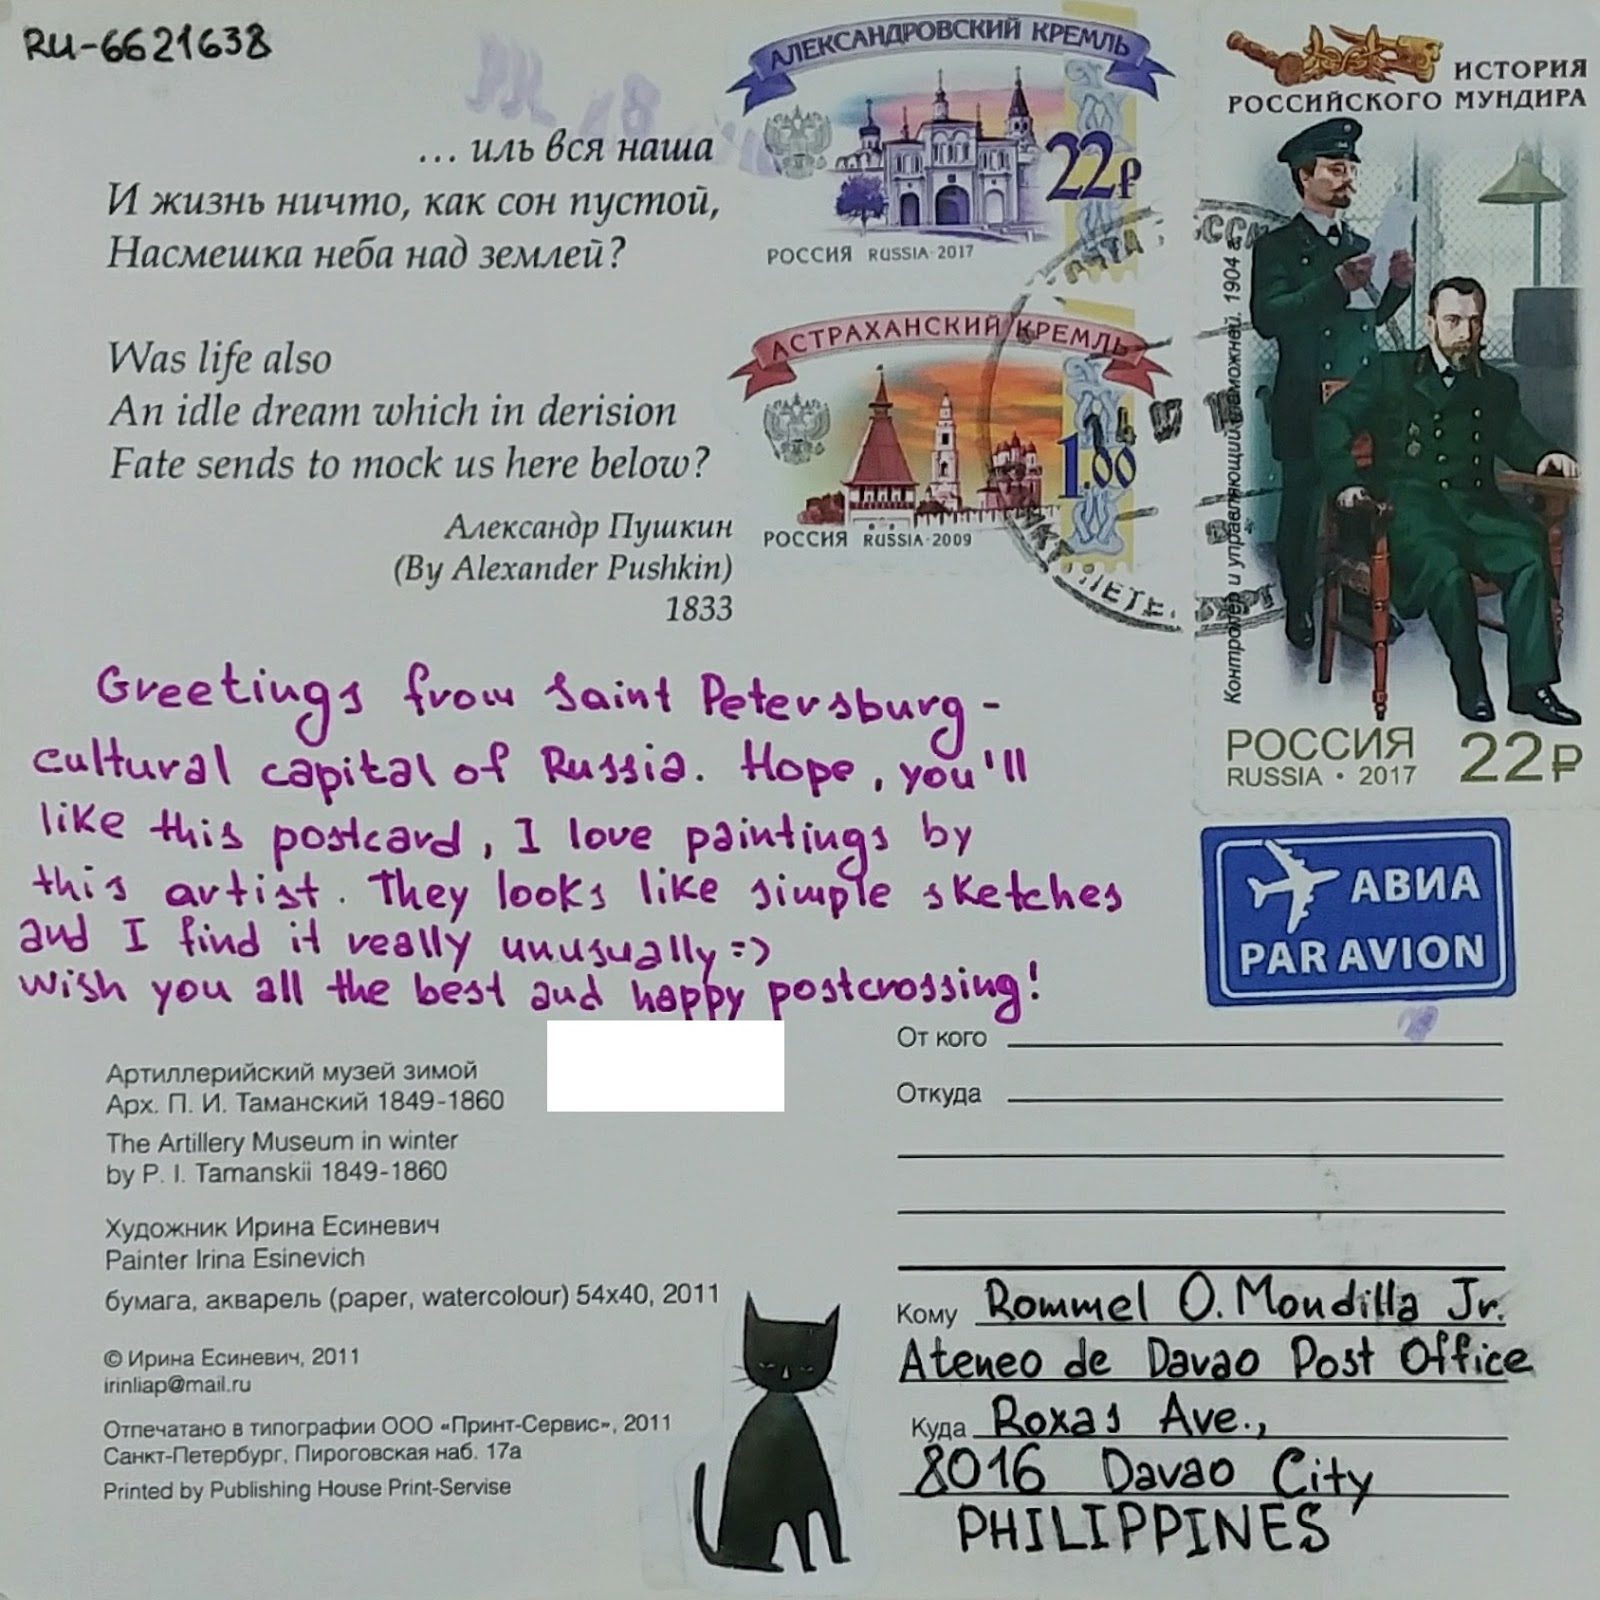 RU-6621638
... иль вся наша
И жизнь ничто, как сон пустой,
Насмешка неба над землей?
Was life also
An idle dream which in derision
Fate sends to mock us here below?
Александр Пушкин
(By Alexander Pushkin)
1833
АЛЕКСАНДРОВСКИЙ КРЕМЛЬ
22₽
РОССИЯ RUSSIA·2017
АСТРАХАНСКИЙ КРЕМЛЬ
1.00
РОССИЯ RUSSIA·2009
ИСТОРИЯ
РОССИЙСКОГО МУНДИРА
Контролер и управляющий таможней. 1904 г.
РОССИЯ
RUSSIA · 2017
22₽
Greetings from Saint Petersburg -
cultural capital of Russia. Hope, you'll
like this postcard, I love paintings by
this artist. They looks like simple sketches
and I find it really unusually =)
Wish you all the best and happy postcrossing!
АВИА
PAR AVION
Артиллерийский музей зимой
Арх. П. И. Таманский 1849-1860
The Artillery Museum in winter
by P. I. Tamanskii 1849-1860
Художник Ирина Есиневич
Painter Irina Esinevich
бумага, акварель (paper, watercolour) 54x40, 2011
© Ирина Есиневич, 2011
irinliap@mail.ru
Отпечатано в типографии ООО «Принт-Сервис», 2011
Санкт-Петербург, Пироговская наб. 17а
Printed by Publishing House Print-Servise
От кого
Откуда
Кому Rommel O. Mondilla Jr.
Ateneo de Davao Post Office
Куда Roxas Ave.,
8016 Davao City
PHILIPPINES